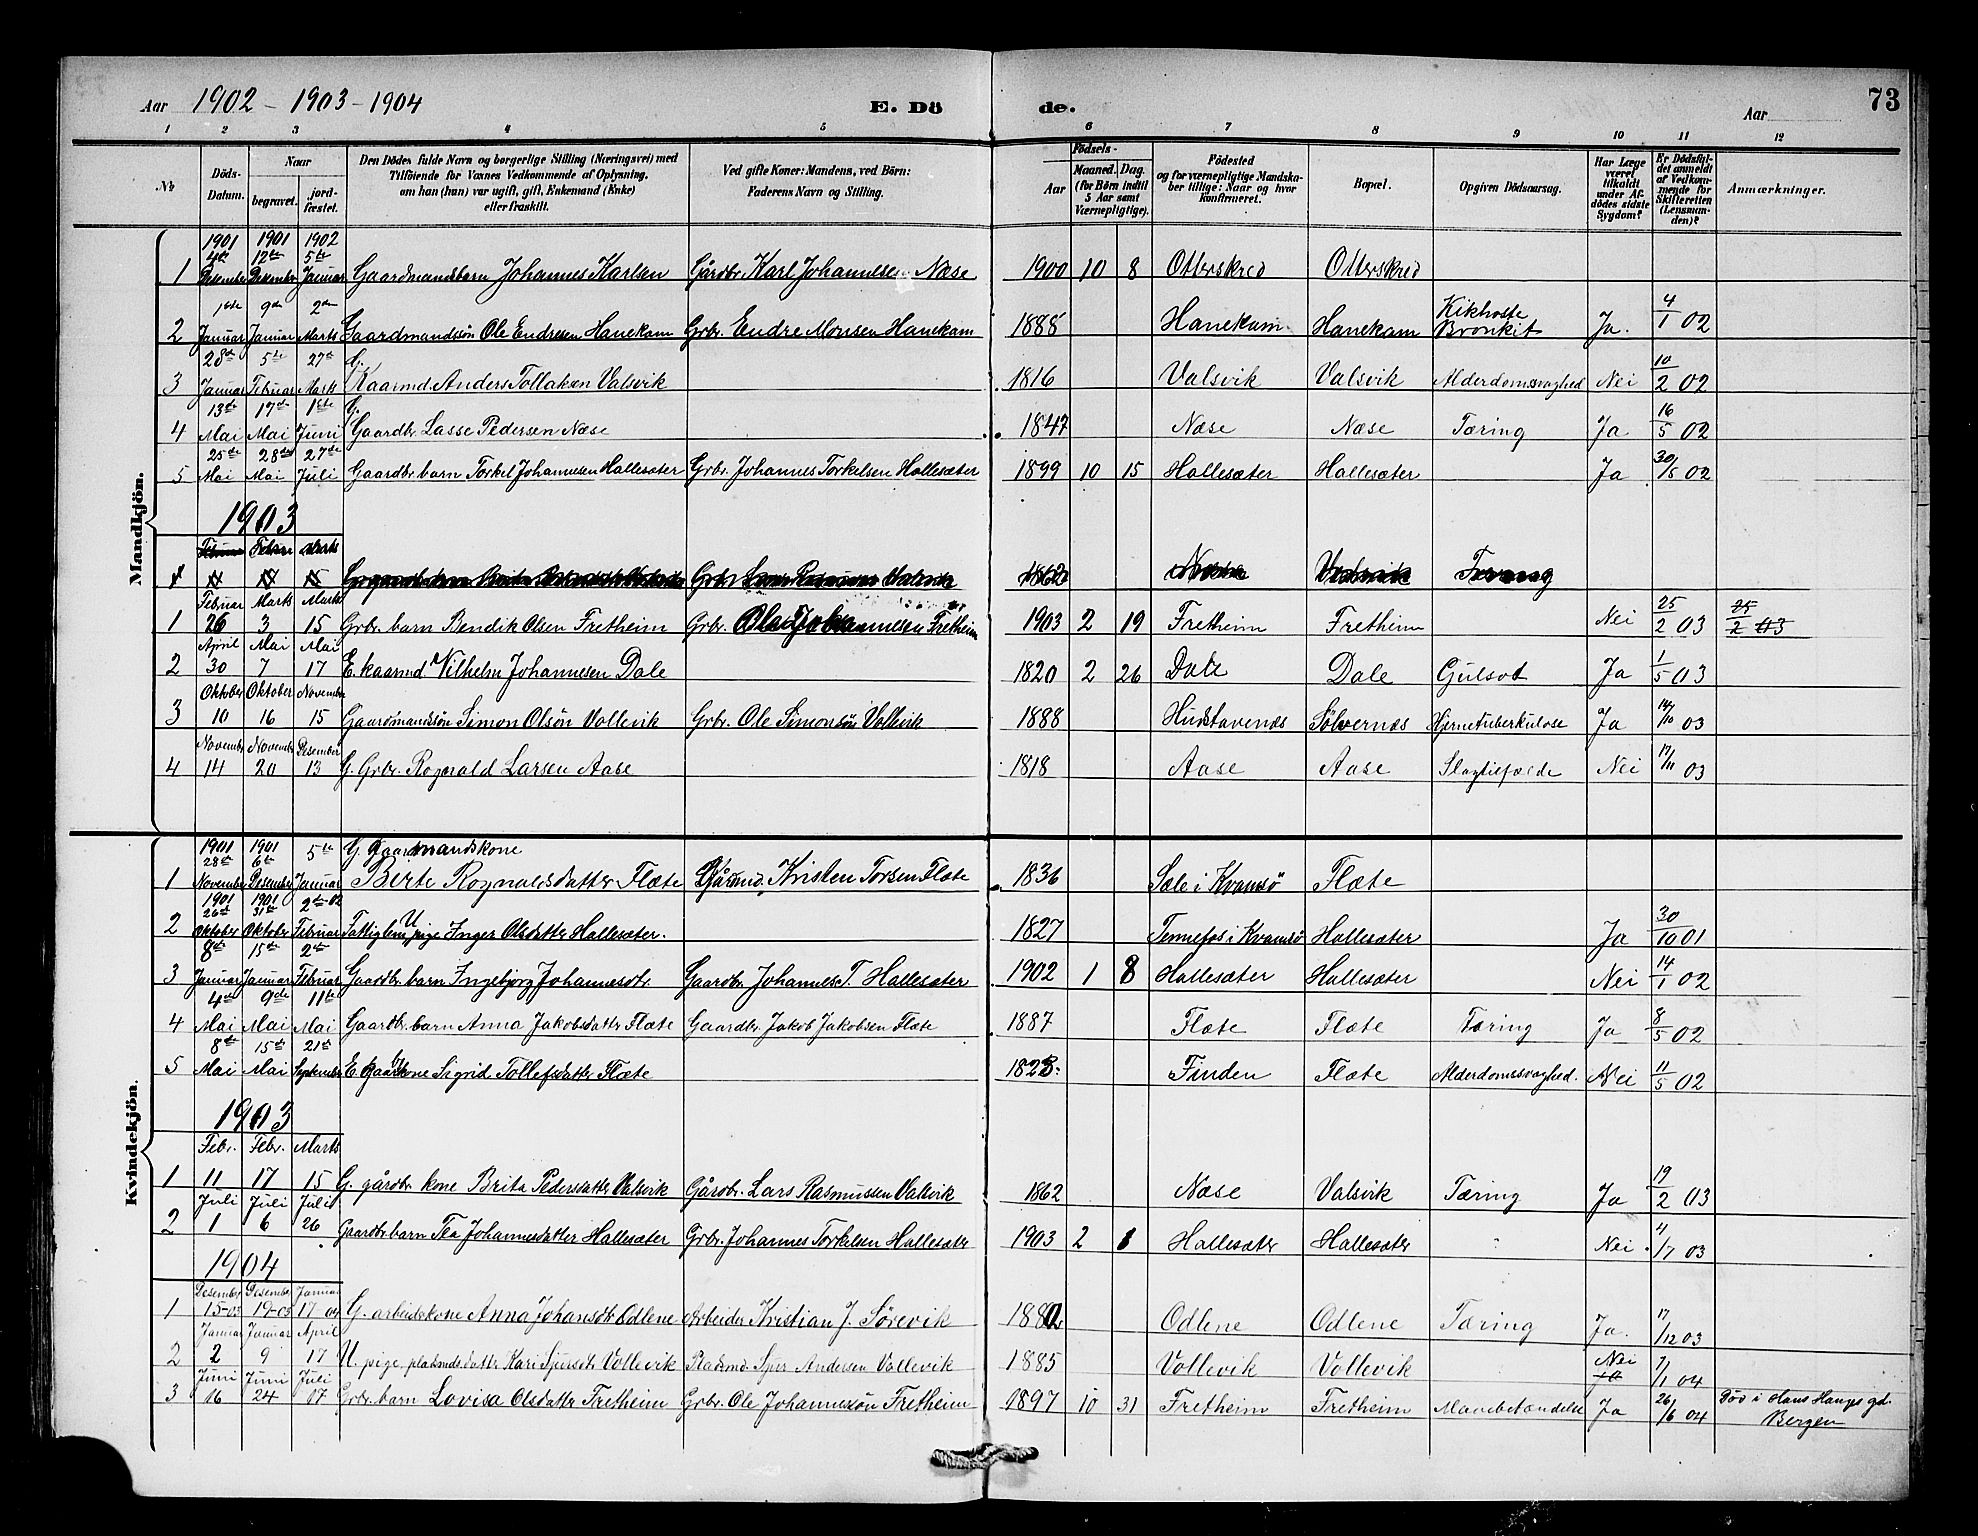 Aar 1902 - 1903 - 1904 E. Dö de. Aar 73
1 2 3 4 5 6 7 8 9 10 11 12
No Döds-Datum. Naar begravet. jord-fæstet. Den Dödes fulde Navn og borgerlige Stilling (Næringsvei) med Tilföiende for Voxnes Vedkommende af Oplysning, om han (hun) var ugift, gift, Enkemand (Enke) eller fraskilt. Ved gifte Koner: Mandens, ved Börn: Faderens Navn og Stilling. Födsels- Aar Maaned. Dag. (for Börn indtil 5 Aar samt Værnepligtige). Födested og for værnepligtige Mandska-ber tillige: Naar og hvor konfirmeret. Bopæl. Opgiven Dödsaarsag. Har Læge været tilkaldt under Af-dödes sidste Sygdom? Er Dödsfal-det anmeldt af Vedkom-mende for Skifteretten (Lensman-den)? Anmærkninger.
Mandkjön.
1901 1901 1902
4de 12te 5te
1 Desember Desember Januar Gaardmandsbarn Johannes Karlsen Gårdbr. Karl Johannesen Næse 1900 10 8 Otterskred Otterskred
1ste 9de 2den
2 Januar Januar Marts Gaardmandssön Ole Endresen Hanekam Grbr. Endre Monsen Hanekam 1888 Hanekam Hanekam Kikhoste Bronkit Ja. 4/1 02
28de 5te 27de G.
3 Januar Februar Marts Kaarmd. Anders Tollaksen Valsvik 1816 Valsvik Valsvik Alderdomssvaghed Nei 10/2 02
13de 17de 1ste G.
4 Mai Mai Juni Gaardbr. Lasse Pedersen Næse 1847 Næse Næse Tæring Ja 16/5 02
25de 28de 27de
5 Mai Mai Juli Gaardbr. barn Torkel Johannesen Hallesæter Grbr. Johannes Torkelsen Hallesæter 1899 10 15 Hallesæter Hallesæter Ja 30/5 02
1903
Februar Februar Marts
1 11 17 15 Grbr. Lars Rasmussen Valsvik 1862 Næse Valsvik Tæring
Februar Marts Marts
1 26 3 15 Grbr. barn Bendik Olsen Fretheim Grbr. Ole Johannesen Fretheim 1903 2 19 Fretheim Fretheim Nei 25/2 03 25/2 03
April Mai Mai
2 30 7 17 E. kaarmd Vilhelm Johannesen Dale 1820 2 26 Dale Dale Gulsot Ja 1/5 03
Oktober Oktober November
3 10 16 15 Gaardmandssön Simon Olsön Vollevik Grbr. Ole Simonsön Vollevik 1888 Hudstavenæs Sölvernæs Hjernetuberkulose Ja 14/10 03
November November Desember
4 14 20 13 G. Grbr. Rognald Larsen Aase 1818 Aase Aase Slagtilfælde Nei 17/11 03
Kvindekjön.
1901 1901 5te G. Gaardmandskone
28de 6te
1 November Desember Januar Birte Rognaldsdatter Flæte Gårdmd. Kristen Torsen Flæte 1836 Sæle i Kvamsö Flæte
1901 1901 2den-02
26de 31te
2 Oktober Oktober Februar Fattiglem, U pige Inger Olsdatter Hallesæter. 1827 Tennefos i Kvamsö Hallesæter Ja 30/10 01
8de 15de 2den
3 Januar Januar Februar Gaardbr. barn Ingebjorg Johannesdtr. Gaardbr. Johannes T. Hallesæter 1902 1 8 Hallesæter Hallesæter Nei 14/1 02
4de 9de 11te
4 Mai Mai Mai Gaardbr. barn Anna Jakobsdatter Flæte Gaardbr. Jakob Jakobsen Flæte 1887 Flæte Flæte Tæring Ja 8/5 02
8de 15de 21de
5 Mai Mai September E. Gaardbr. kone Sigrid Tollefsdatter Flæte 1823. Finden Flæte Alderdomssvaghed. Nei 11/5 02
1903
Febr. Febr. Marts
1 11 17 15 G. gårdbr. kone Brita Pedersdatter Valsvik Gårdbr. Lars Rasmussen Valsvik 1862 Næse Valsvik Tæring Ja 19/2 03
Juli Juli Juli
2 1 6 26 Gaardbr. barn Tea Johannesdatter Hallesæter Grbr. Johannes Torkelsen Hallesæter 1903 2 1 Hallesæter Hallesæter Nei 4/7 03
1904
Desember Desember Januar
1 15-03 19-03 17 04 G. arbeiderkone Anna Johansdtr Odlene Arbeider Kristian J. Sörevik 1880 Odlene Odlene Tæring Ja. 17/12 03
Januar Januar April
2 2 9 17 U. pige pladsmds. datter Kari Sjursdtr Vollevik Pladsmd. Sjur Andersen Vollevik 1885 Vollevik Vollevik Nei Ja 7/1 04
Juni Juni Juli
3 16 24 17 Grbr. barn Lovisa Olsdatter Fretheim Grbr. Ole Johannessön Fretheim 1897 10 31 Fretheim Fretheim Mavebetændelse Ja 26/6 04 Död i Hans Hauges gd. Bergen